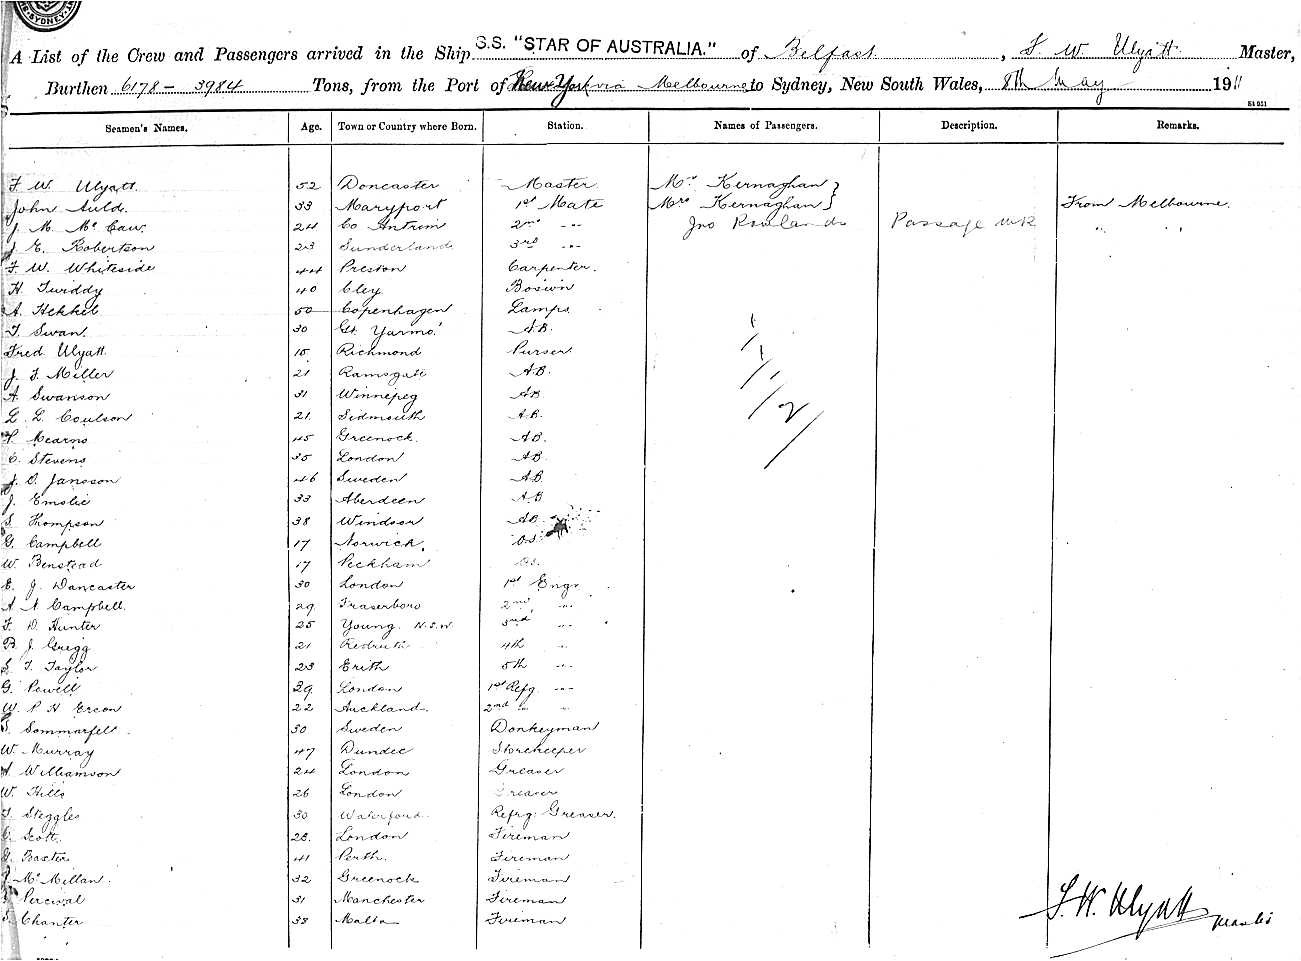 SYDNEY
A List of the Crew and Passengers arrived in the Ship S.S. "STAR OF AUSTRALIA." of Belfast, F. W. Wyatt Master,
Burthen 6178 - 3984 Tons, from the Port of New York via Melbourne to Sydney, New South Wales, 8th May 1911
Seamen's Names. Age. Town or Country where Born. Station. Names of Passengers. Description. Remarks.
F. W. Wyatt 52 Doncaster Master. Mr. Kernaghan }
John Auld. 33 Maryport 1st Mate Mrs Kernaghan } From Melbourne.
J. M. McCaw. 24 Co Antrim 2nd " Jno Rowlands Passage wk " "
J. E. Robertson 23 Sunderland 3rd "
F. W. Whiteside 44 Preston Carpenter.
H. Twiddy 40 Cley Bosun
A. Hekkel 50 Copenhagen Lamps
T. Swan. 30 Gt. Yarmo' A.B.
Fred Wyatt 15 Richmond Purser
J. F. Miller 21 Ramsgate A.B.
A. Swanson 31 Winnipeg AB
L. Coulson 21. Sidmouth A.B.
Mearns 45 Greenock. AB.
C. Stevens 35 London AB.
J. O. Jansson 46 Sweden AB.
J. Emslie 33 Aberdeen AB
S. Thompson 38 Windsor AB
G. Campbell 17 Norwich. O.S.
W. Benstead 17 Peckham O.S.
E. J. Dancaster 30 London 1st Engr
A A Campbell. 29 Fraserboro 2nd "
F. D. Hunter 25 Young. N.S.W 3rd "
B. J. Gregg 21 Redruth 4th "
S. T. Taylor 23 Erith 5th "
G. Powell 29. London 1st Refg. "
W. P H Ercon 22 Auckland. 2nd " "
S. Sommarfelt. 30 Sweden Donkeyman
W. Murray 47 Dundee Storekeeper
A. Williamson 24 London Greaser
W. Hills 26 London Greaser
T. Steggles 30 Waterford. Refrg: Greaser.
C. Scott. 23. London Fireman
G. Baxter 41 Perth. Fireman
J. McMillan. 32 Greenock Fireman
Percival 31 Manchester Fireman
S. Chanter 38 Malta Fireman
F. W. Wyatt Master